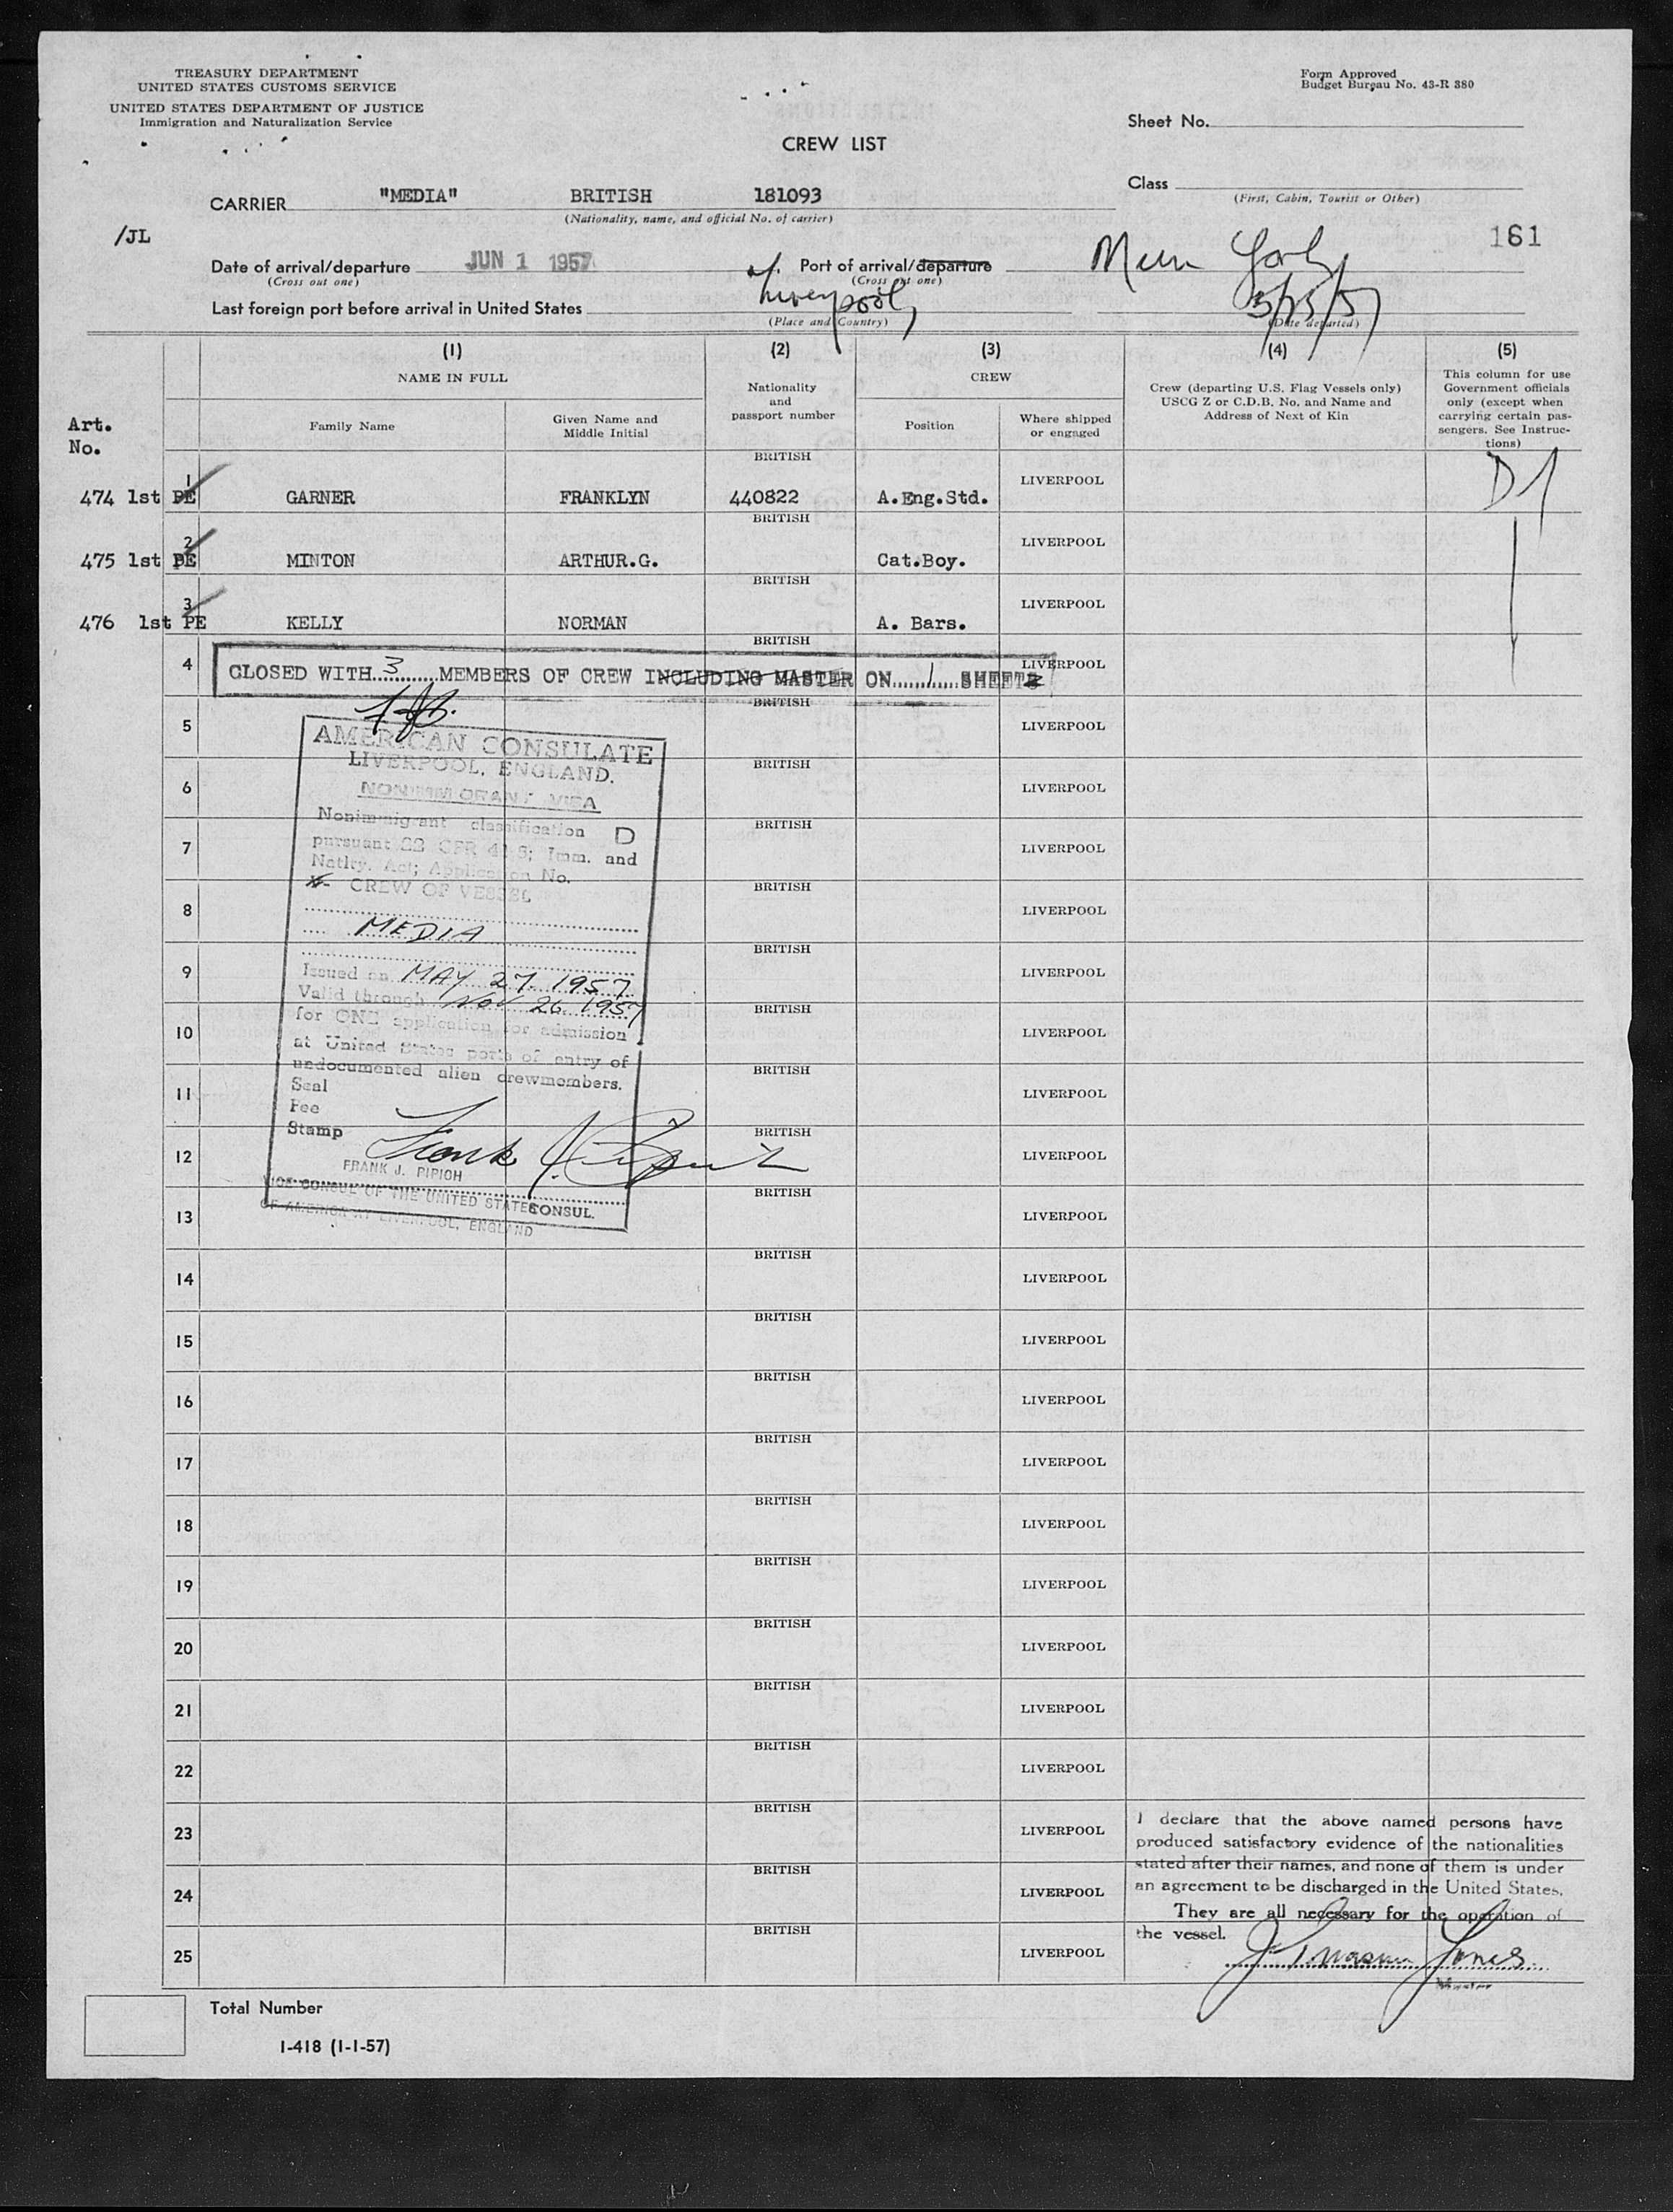 TREASURY DEPARTMENT
UNITED STATES CUSTOMS SERVICE
UNITED STATES DEPARTMENT OF JUSTICE
Immigration and Naturalization Service
Form Approved
Budget Bureau No. 43-R 380
Sheet No.
CREW LIST
Class
(First, Cabin, Tourist or Other)
CARRIER "MEDIA" BRITISH 181093
(Nationality, name, and official No. of carrier)
/JL
161
Date of arrival/departure JUN 1 1957 Port of arrival/departure New York
(Cross out one) (Cross out one)
Last foreign port before arrival in United States Liverpool,
(Place and Country) (Date departed)
(1) (2) (3) (4) (5)
NAME IN FULL
Nationality and passport number
CREW
Crew (departing U.S. Flag Vessels only) USCG Z or C.D.B. No. and Name and Address of Next of Kin
This column for use Government officials only (except when carrying certain passengers. See Instructions)
Art. No.
Family Name
Given Name and Middle Initial
Position
Where shipped or engaged
BRITISH
474 1st PE 1 GARNER FRANKLYN 440822 A.Eng.Std. LIVERPOOL D1
BRITISH
475 1st PE 2 MINTON ARTHUR.G. Cat.Boy. LIVERPOOL
BRITISH
476 1st PE 3 KELLY NORMAN A. Bars. LIVERPOOL
BRITISH
4 LIVERPOOL
CLOSED WITH 3 MEMBERS OF CREW INCLUDING MASTER ON 1 SHEETS
BRITISH
5 LIVERPOOL
AMERICAN CONSULATE
LIVERPOOL, ENGLAND.
NONIMMIGRANT VISA
Nonimmigrant classification D
pursuant 22 CFR 41.5; Imm. and
Natlty. Act; Application No.
CREW OF VESSEL
MEDIA
Issued on MAY 27, 1957
Valid through NOV 26 1957
for ONE application for admission
at United States ports of entry of
undocumented alien crewmembers.
Seal
Fee
Stamp
FRANK J. PIPIGH
VICE CONSUL OF THE UNITED STATES
CONSUL.
OF AMERICA AT LIVERPOOL, ENGLAND
BRITISH
6 LIVERPOOL
BRITISH
7 LIVERPOOL
BRITISH
8 LIVERPOOL
BRITISH
9 LIVERPOOL
BRITISH
10 LIVERPOOL
BRITISH
11 LIVERPOOL
BRITISH
12 LIVERPOOL
BRITISH
13 LIVERPOOL
BRITISH
14 LIVERPOOL
BRITISH
15 LIVERPOOL
BRITISH
16 LIVERPOOL
BRITISH
17 LIVERPOOL
BRITISH
18 LIVERPOOL
BRITISH
19 LIVERPOOL
BRITISH
20 LIVERPOOL
BRITISH
21 LIVERPOOL
BRITISH
22 LIVERPOOL
BRITISH
23 LIVERPOOL
BRITISH
24 LIVERPOOL
BRITISH
25 LIVERPOOL
I declare that the above named persons have
produced satisfactory evidence of the nationalities
stated after their names, and none of them is under
an agreement to be discharged in the United States.
They are all necessary for the operation of
the vessel.
Jones
Master
Total Number
I-418 (1-1-57)